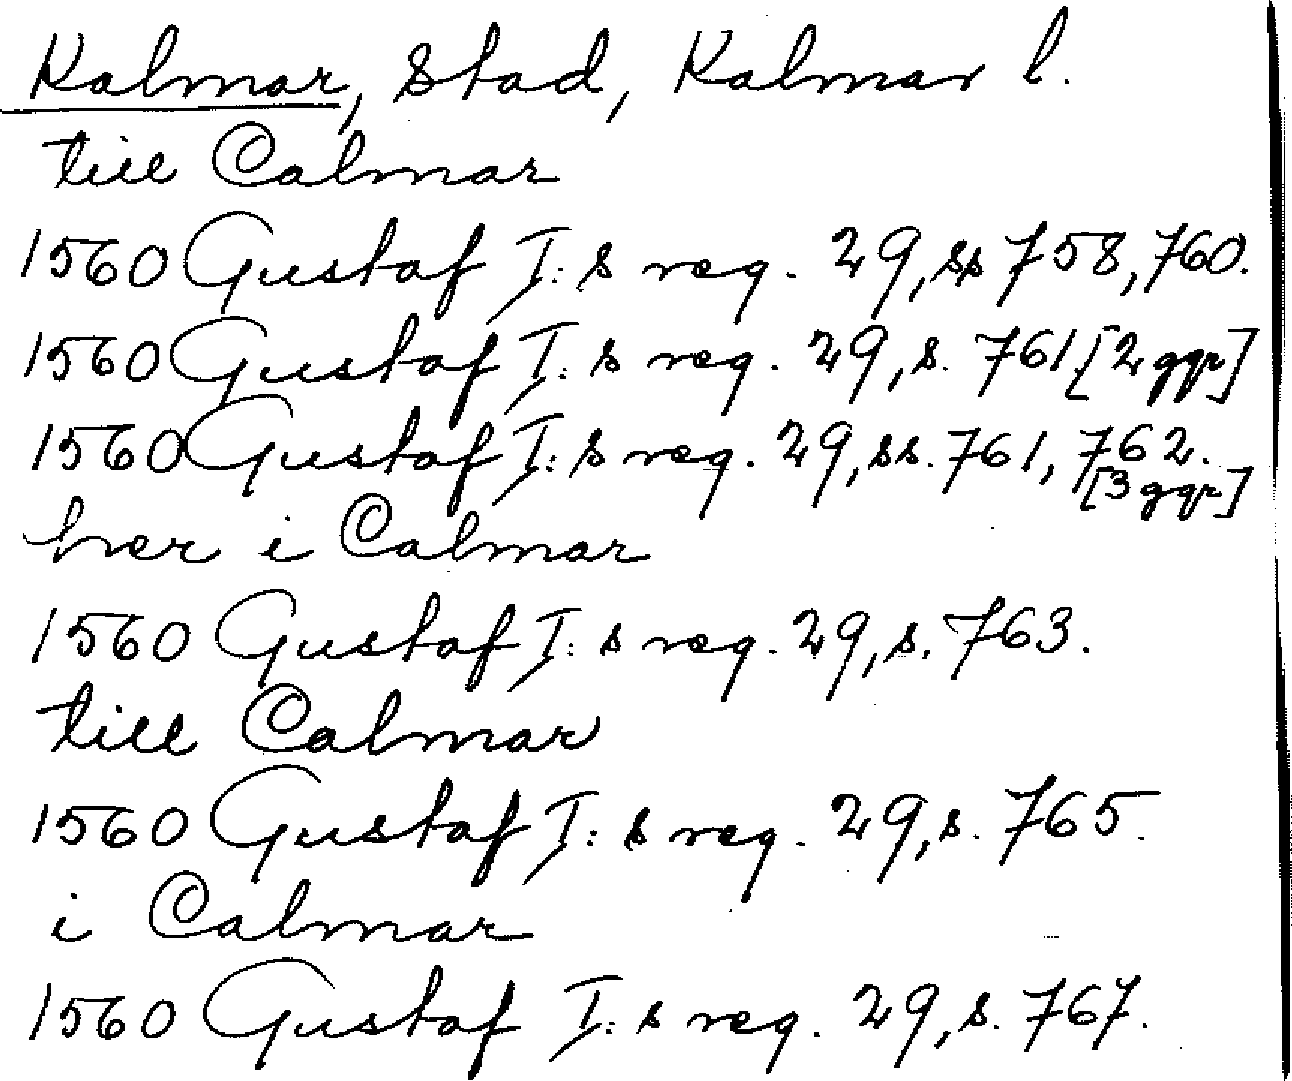 Kalmar, Stad, Kalmar l.
till Calmar
1560 Gustaf I:s reg. 29, ss 758, 760.
1560 Gustaf I:s reg. 29, s. 761 [2 ggr]
1560 Gustaf I:s reg. 29, ss. 761, 762.
[3 ggr]
her i Calmar
1560 Gustaf I:s reg. 29, s. 763.
till Calmar
1560 Gustaf I:s reg. 29, s. 765.
i Calmar
1560 Gustaf I:s reg. 29, s. 767.